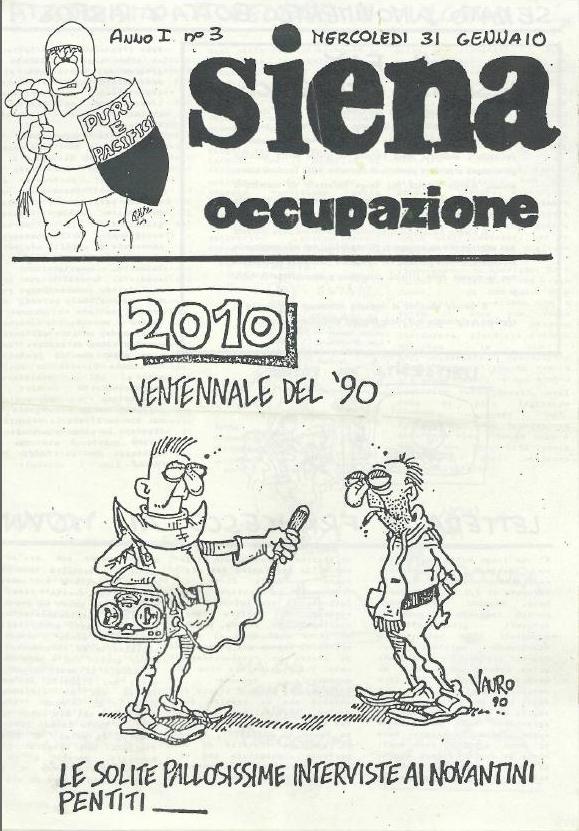 Anno I nº 3
MERCOLEDI 31 GENNAIO
siena
occupazione
DURI
E
PACIFICI
2010
VENTENNALE DEL '90
VAURO
90
LE SOLITE PALLOSISSIME INTERVISTE AI NOVANTINI
PENTITI